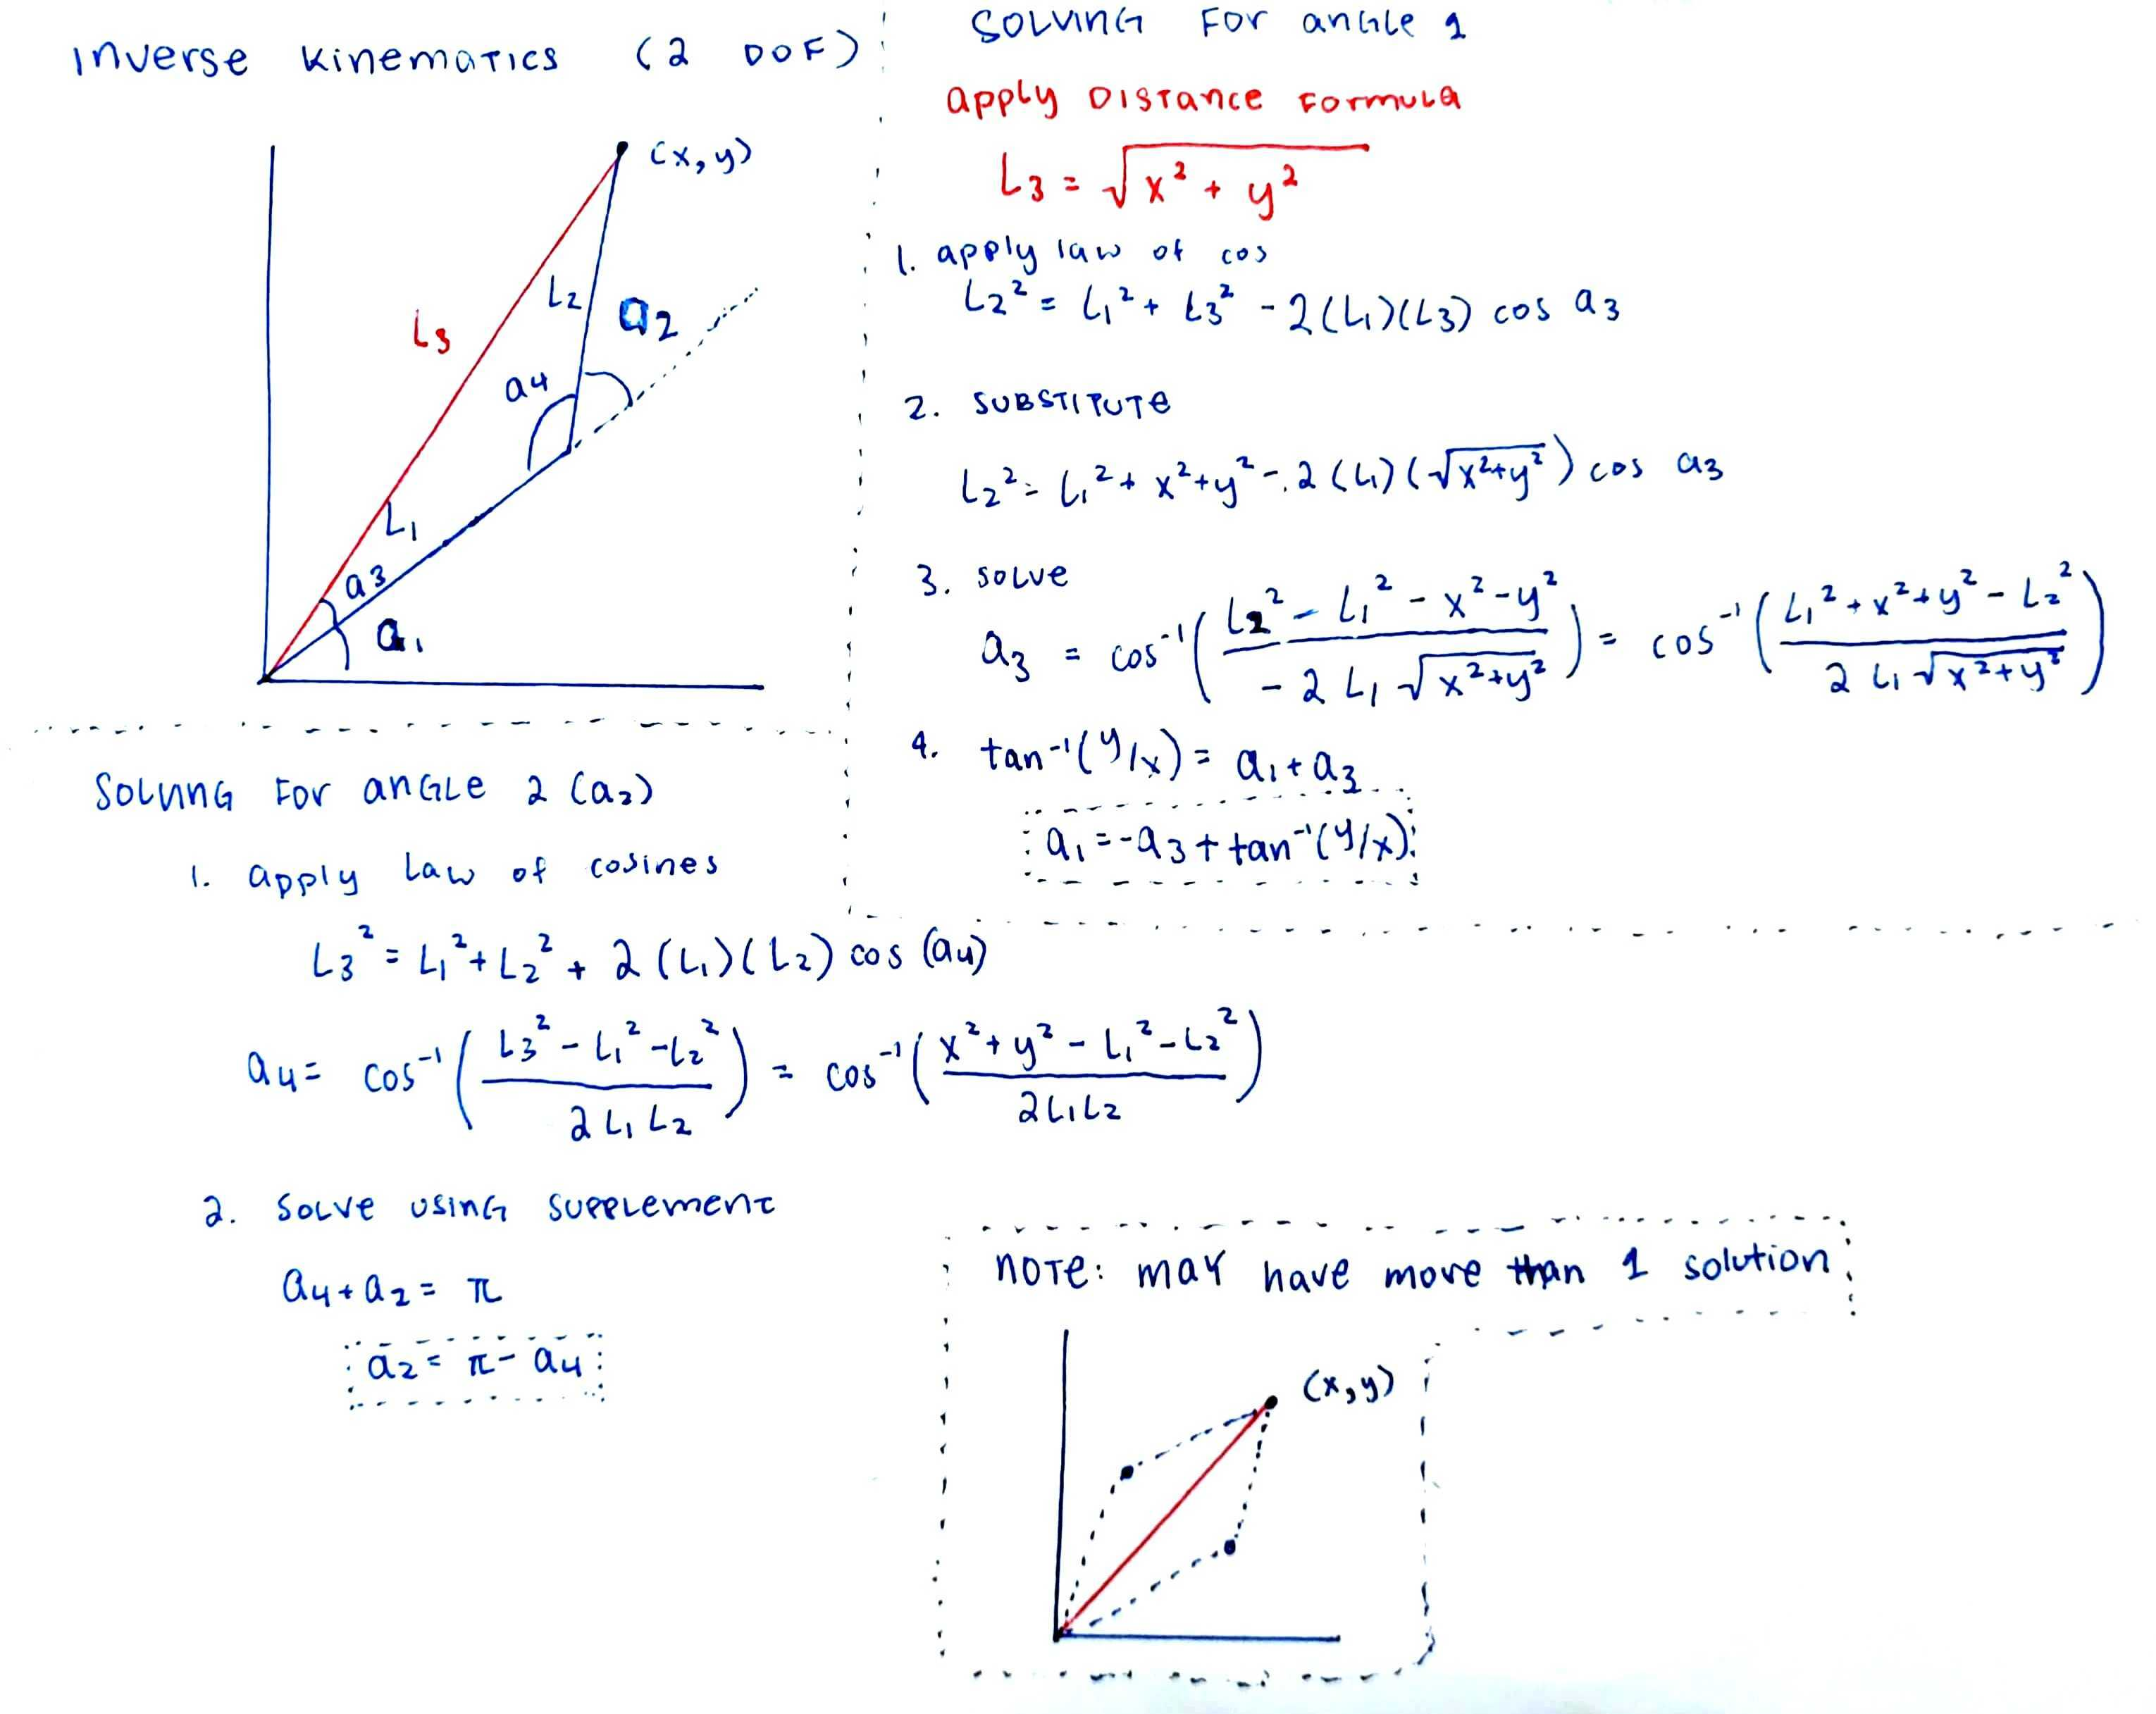 Inverse Kinematics (2 DOF)
(x,y)
L2
a2
L3
a4
L1
a3
a1
Solving for angle 1
apply Distance Formula
L3 = √x² + y²
1. apply law of cos
L2² = L1² + L3² - 2(L1)(L3) cos a3
2. SUBSTITUTE
L2² = L1² + x²+y² - 2(L1)(√x²+y²) cos a3
3. solve
a3 = cos⁻¹( L2² - L1² - x² - y² / - 2 L1 √x²+y² ) = cos⁻¹( L1² + x² + y² - L2² / 2 L1 √x²+y² )
4. tan⁻¹(y/x) = a1 + a3
a1 = -a3 + tan⁻¹(y/x)
Solving For angle 2 (a2)
1. apply Law of cosines
L3² = L1² + L2² + 2(L1)(L2) cos(a4)
a4 = cos⁻¹( L3² - L1² - L2² / 2 L1 L2 ) = cos⁻¹( x² + y² - L1² - L2² / 2L1L2 )
2. Solve using supplement
a4 + a2 = π
a2 = π - a4
Note: may have more than 1 solution
(x,y)